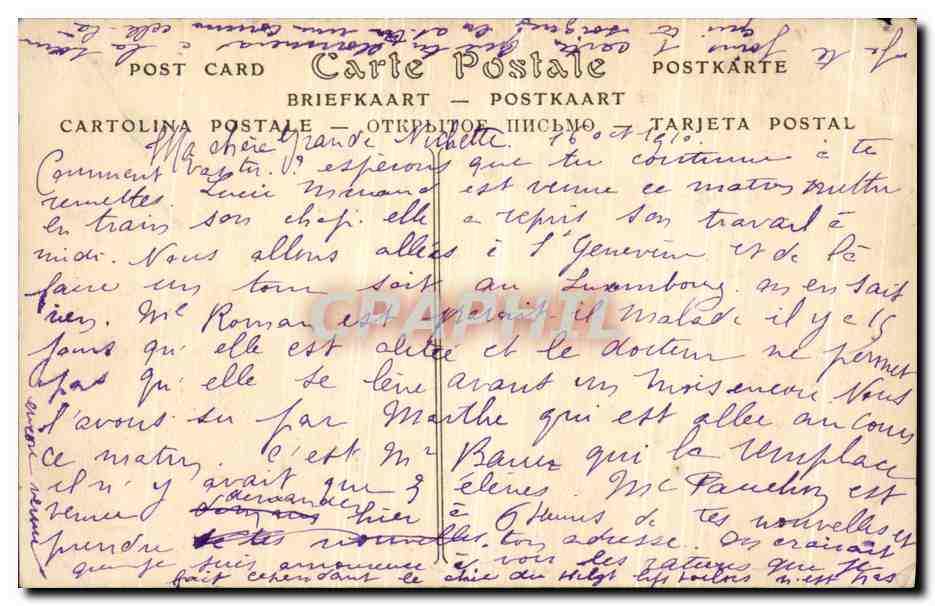 Je te
POST CARD Carte Postale POSTKARTE
BRIEFKAART — POSTKAART
CARTOLINA POSTALE — ОТКРЫТОЕ ПИСЬМО — TARJETA POSTAL
Ma chère Grande 16 oct 1910
Comment vas tu? espérons que tu continue à te
remettes. Lucie est venue ce matin mettre
en train son chap. elle a repris son travail à
midi. Nous allons allées à Geneviève et de là
faire un tour soit au Luxembourg on en sait
rien. Me Roman est parait il malade il y a 15
jours qu'elle est alitée et le docteur ne permet
pas qu'elle se lève avant un mois encore Nous
l'avons su par Marthe qui est allée au cours
ce matin. C'est Me qui la remplace
il n'y avait que 3 élèves. Me est
venue demander hier à 6 heures de tes nouvelles et
prendre de tes nouvelles. ton adresse. On croirait
que je suis amoureuse à voir les ratures que je
fait cependant le n'est pas
encore venu
CPAPHIL